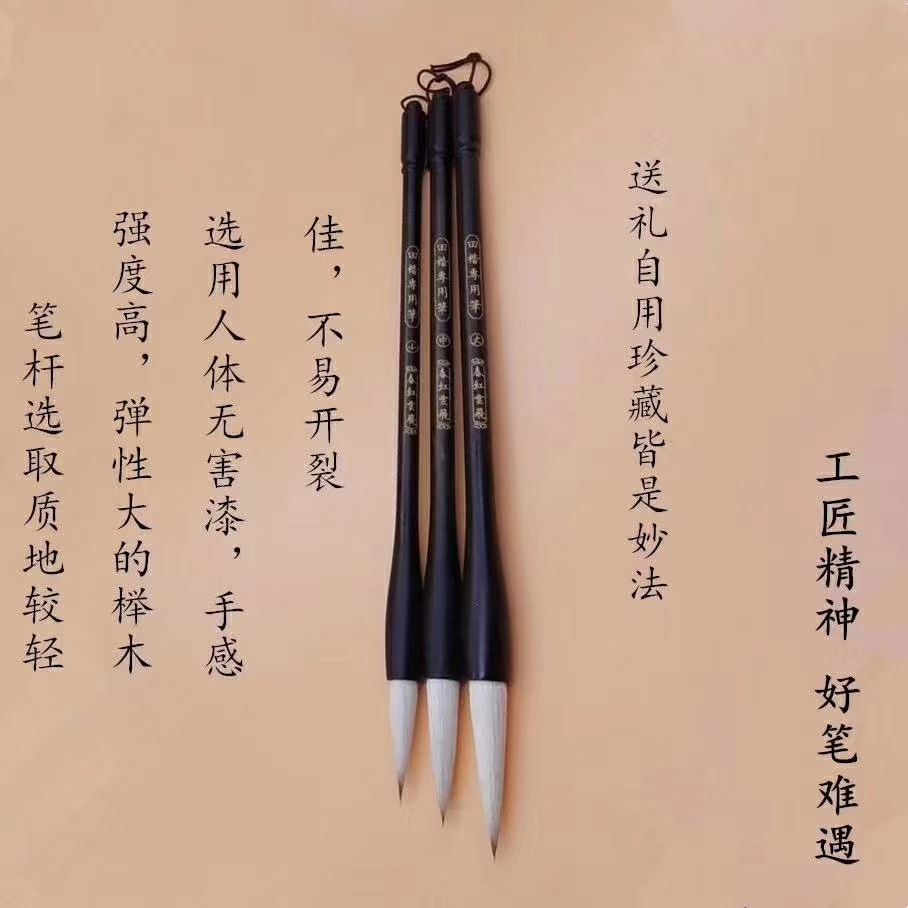 工匠精神 好笔难遇
送礼自用珍藏皆是妙法
笔杆选取质地较轻
强度高，弹性大的榉木
选用人体无害漆，手感
佳，不易开裂
田楷專用筆 小 春红雲飛
田楷專用筆 中 春红雲飛
田楷專用筆 大 春红雲飛